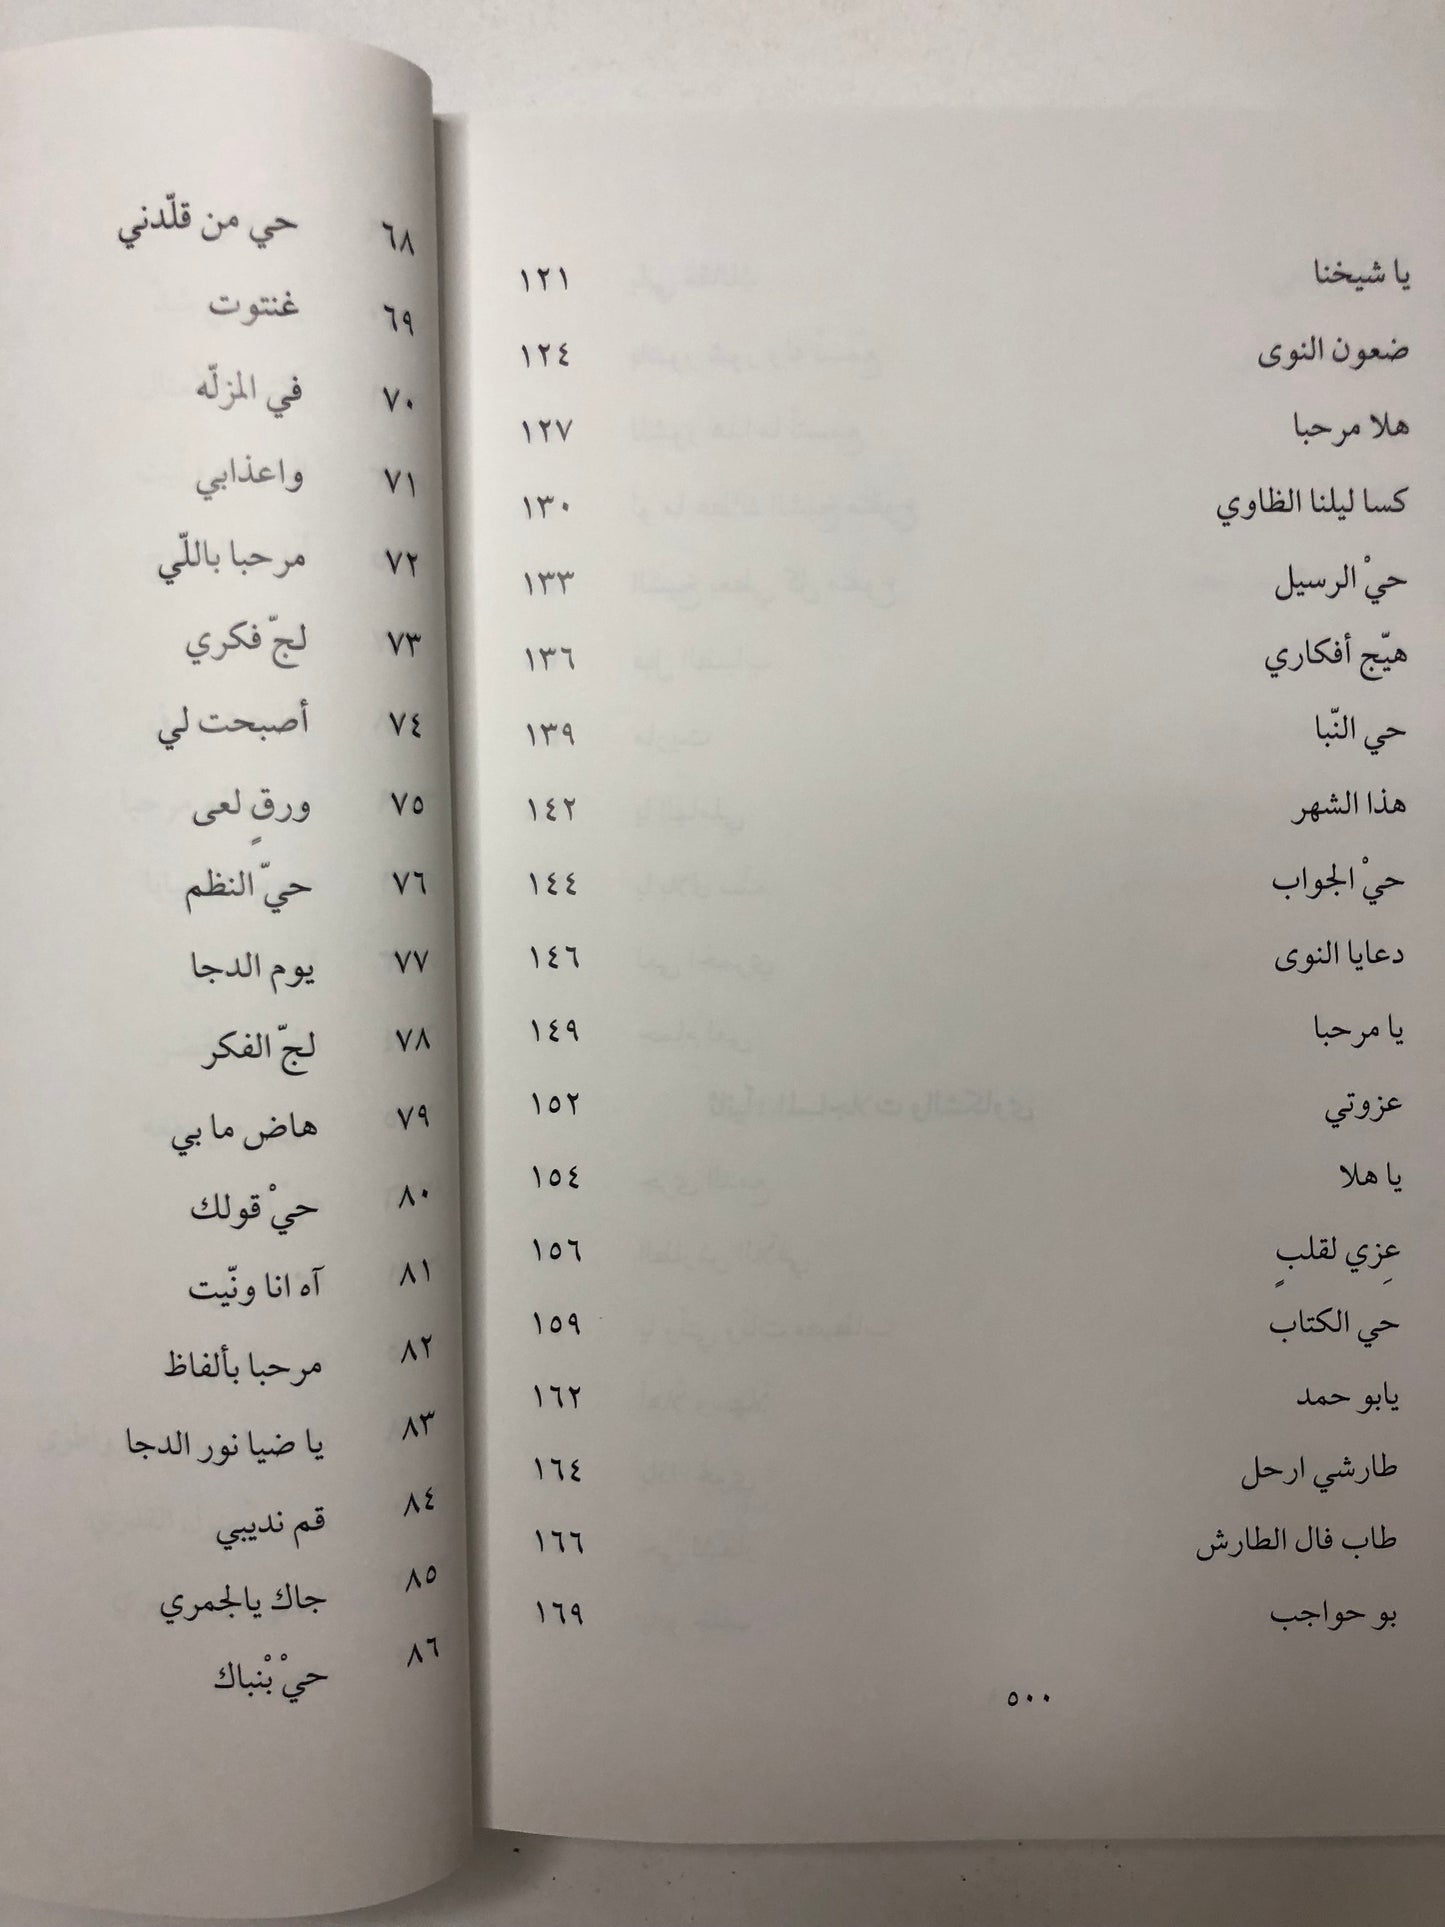 يا شيخنا ١٢١
ضعون النوى ١٢٤
هلا مرحبا ١٢٧
كسا ليلنا الظاوي ١٣٠
حيْ الرسيل ١٣٣
هيّج أفكاري ١٣٦
حي النّبا ١٣٩
هذا الشهر ١٤٢
حيْ الجواب ١٤٤
دعايا النوى ١٤٦
يا مرحبا ١٤٩
عزوتي ١٥٢
يا هلا ١٥٤
عِزي لقلبٍ ١٥٦
حي الكتاب ١٥٩
يابو حمد ١٦٢
طارشي ارحل ١٦٤
طاب فال الطارش ١٦٦
بو حواجب ١٦٩
٥٠٠
٦٨ حي من قلّدني
٦٩ غنتوت
٧٠ في المزلّه
٧١ واعذابي
٧٢ مرحبا باللّي
٧٣ لجّ فكري
٧٤ أصبحت لي
٧٥ ورقٍ لعى
٧٦ حيّ النظم
٧٧ يوم الدجا
٧٨ لجّ الفكر
٧٩ هاض ما بي
٨٠ حيْ قولك
٨١ آه انا ونّيت
٨٢ مرحبا بألفاظ
٨٣ يا ضيا نور الدجا
٨٤ قم نديبي
٨٥ جاك يالجمري
٨٦ حيْ بْنباك